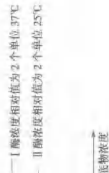 Ⅰ酶浓度相对值为2个单位 37℃
Ⅱ酶浓度相对值为2个单位 25℃
底物浓度